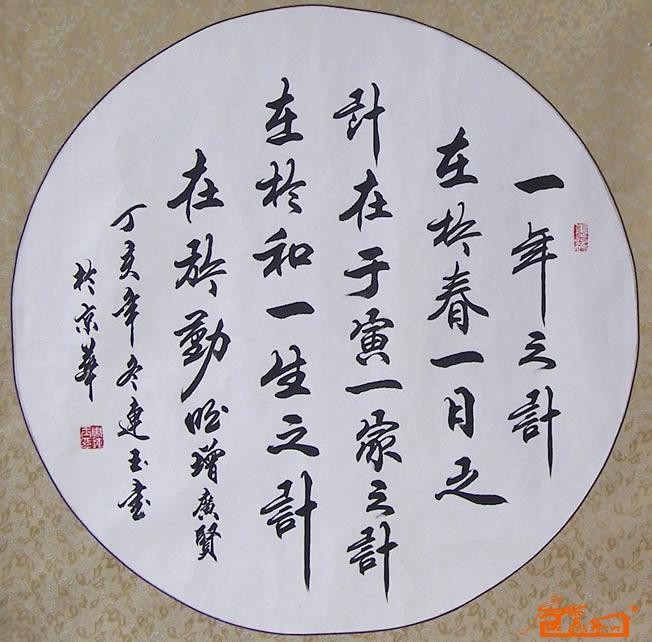 一年之計
在於春一日之
計在于寅一家之計
在於和一生之計
在於勤增廣賢
丁亥年冬連玉書
於京華